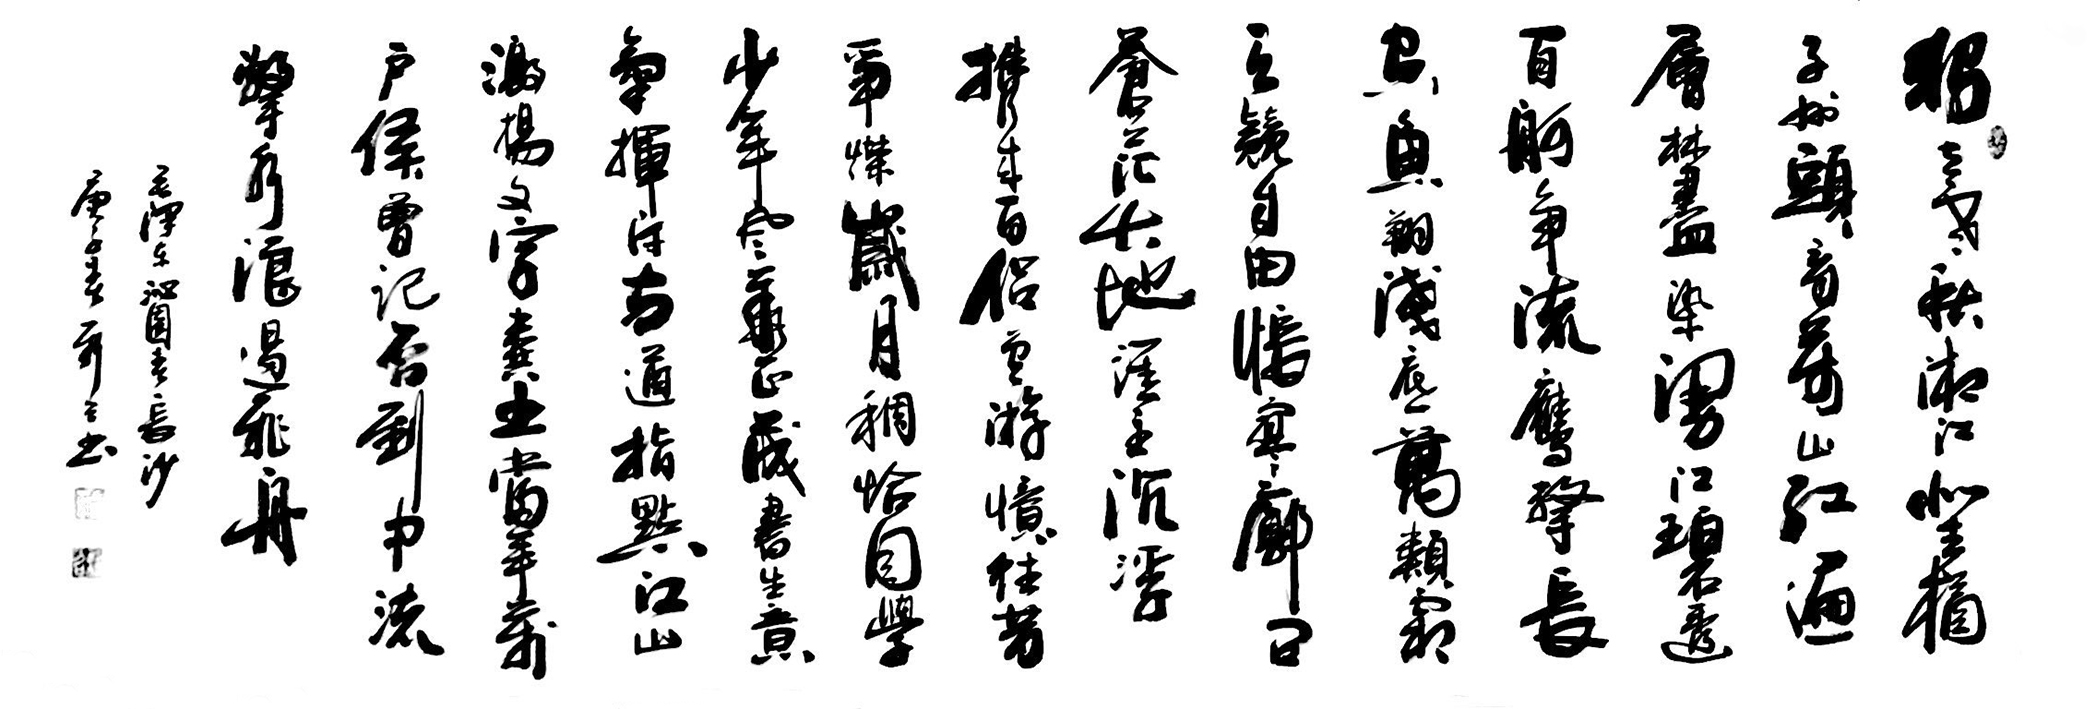 獨立寒秋湘江北去橘
子洲頭看萬山紅遍
層林盡染漫江碧透
百舸争流鷹擊長
空魚翔淺底萬類霜
天競自由悵寥廓問
蒼茫大地誰主沉浮
携来百侣曾游憶往昔
崢嶸歲月稠恰同學
少年風華正茂書生意
氣揮斥方遒指點江山
激揚文字糞土當年萬
户侯曾記否到中流
擊水浪遏飛舟
毛澤东沁園春長沙
庚子春